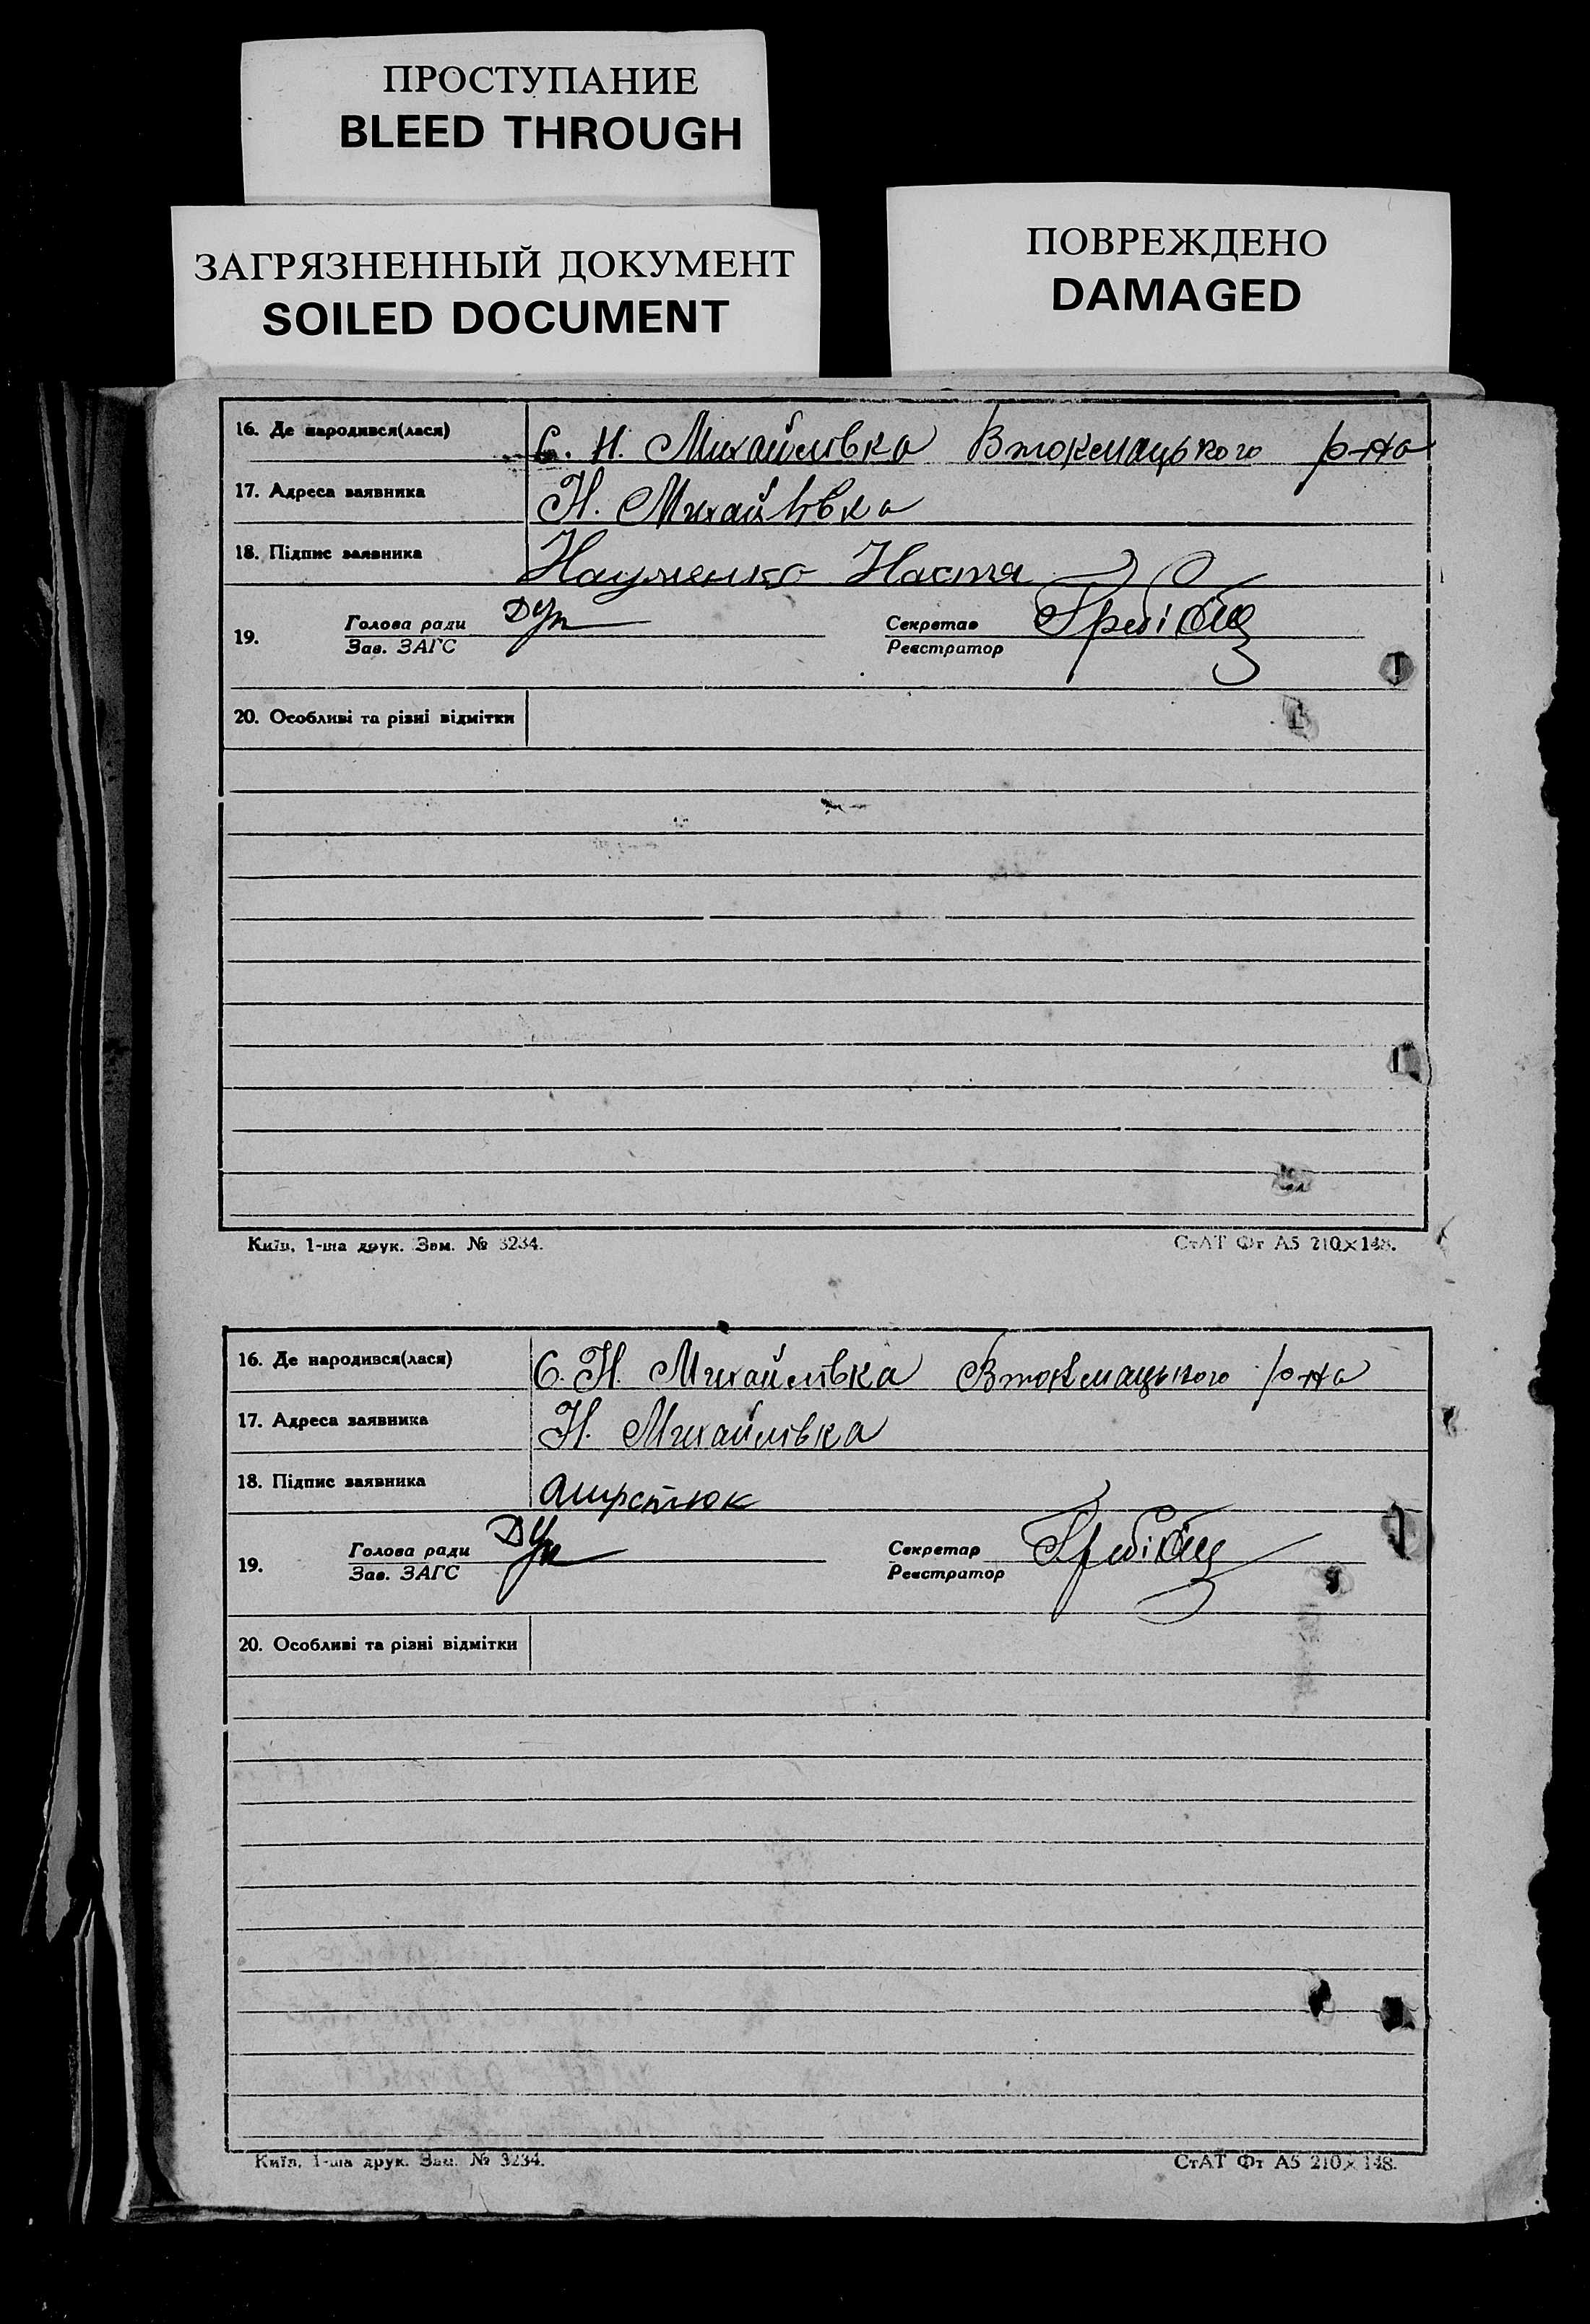 ПРОСТУПАНИЕ
BLEED THROUGH
ЗАГРЯЗНЕННЫЙ ДОКУМЕНТ
SOILED DOCUMENT
ПОВРЕЖДЕНО
DAMAGED
16. Де народився(лася) С. Н. Михайлівка Втокмацького р-на
17. Адреса заявника Н. Михайлівка
18. Підпис заявника Науменко Настя
19. Голова ради Секретар
Зав. ЗАГС Реєстратор
20. Особливі та різні відмітки
Київ, 1-ша друк. Зам. № 3234. СтАТ Фт А5 210×148.
16. Де народився(лася) С. Н. Михайлівка Втокмацького р-на
17. Адреса заявника Н. Михайлівка
18. Підпис заявника
19. Голова ради Секретар
Зав. ЗАГС Реєстратор
20. Особливі та різні відмітки
Київ, 1-ша друк. Зам. № 3234. СтАТ Фт А5 210×148.